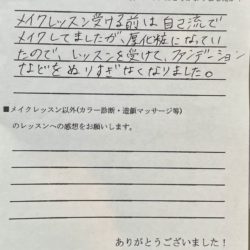 メイクレッスン受ける前は自己流で
メイクしてましたが、厚化粧になってい
たので、レッスンを受けて、ファンデーション
などをぬりすぎなくなりました。
■メイクレッスン以外(カラー診断・造顔マッサージ等)
のレッスンへの感想をお願いします。
ありがとうございました！